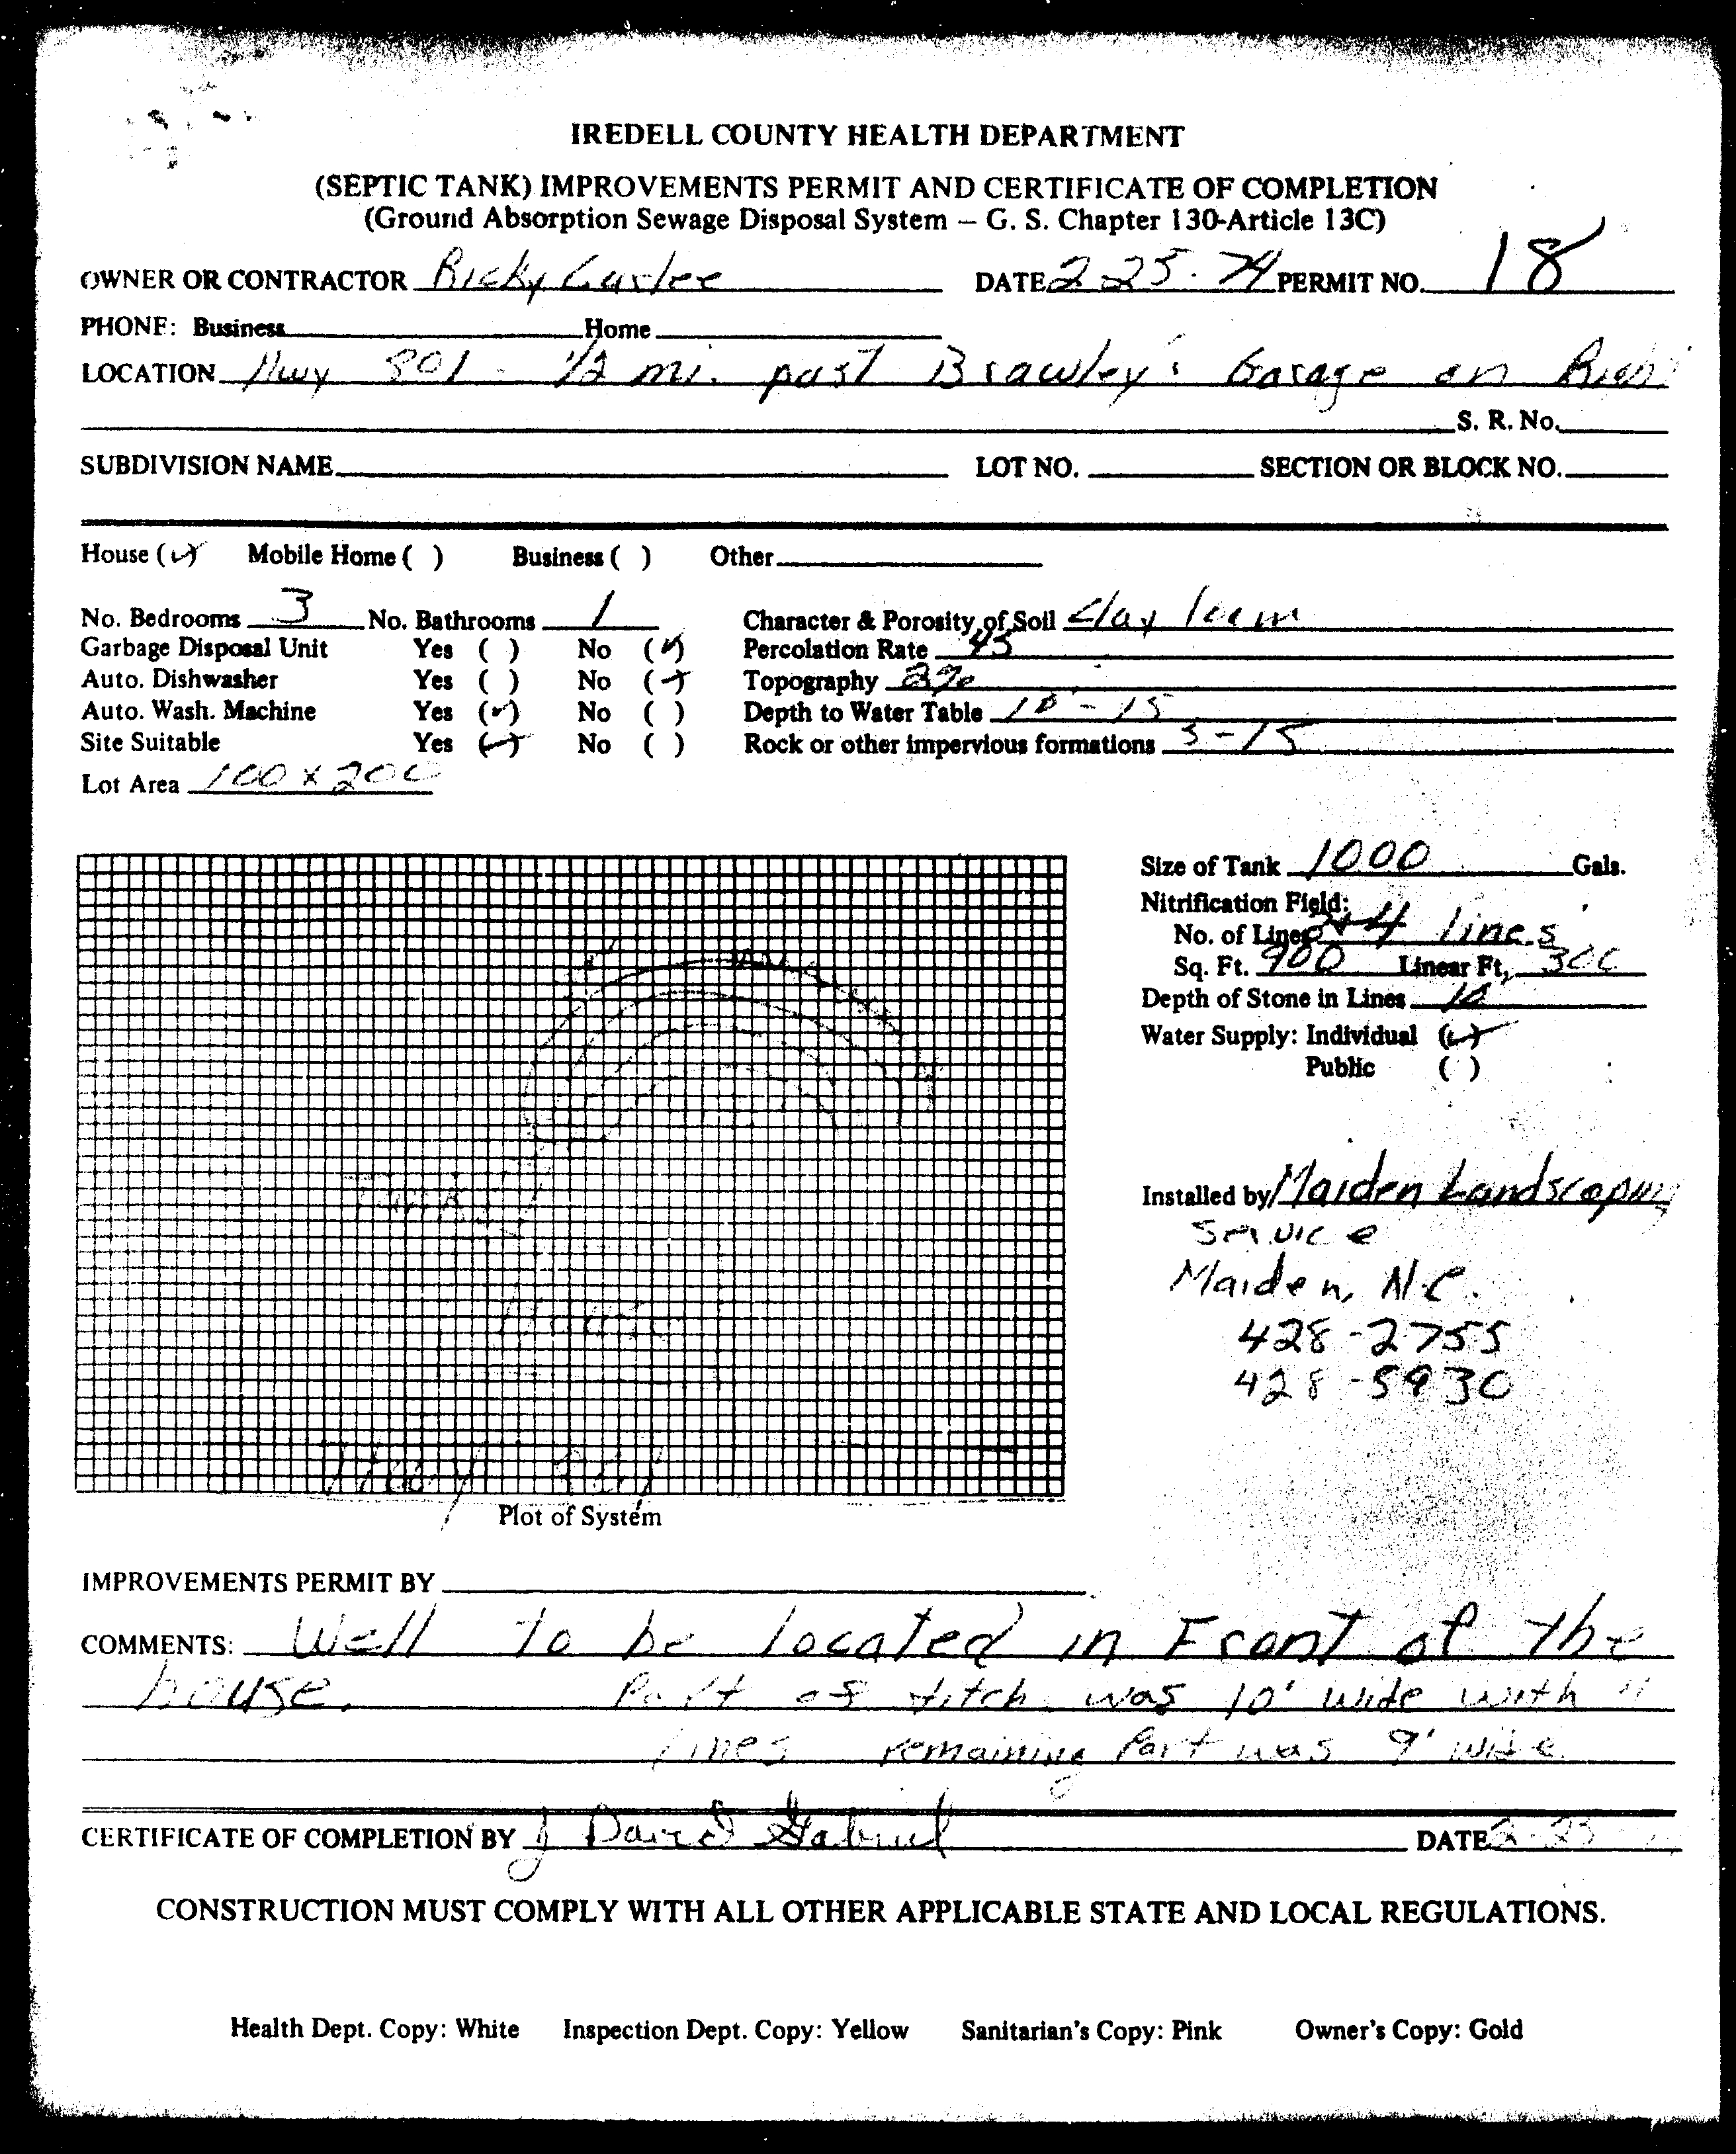 IREDELL COUNTY HEALTH DEPARTMENT
(SEPTIC TANK) IMPROVEMENTS PERMIT AND CERTIFICATE OF COMPLETION
(Ground Absorption Sewage Disposal System – G. S. Chapter 130-Article 13C)
OWNER OR CONTRACTOR Ricky DATE 2-25-74 PERMIT NO. 18
PHONE: Business Home
LOCATION Hwy 801 - 1/2 mi. past Brawley's Garage on Right
S. R. No.
SUBDIVISION NAME LOT NO. SECTION OR BLOCK NO.
House (✓) Mobile Home ( ) Business ( ) Other
No. Bedrooms 3 No. Bathrooms 1 Character & Porosity of Soil Clay loam
Garbage Disposal Unit Yes ( ) No (✓) Percolation Rate 45
Auto. Dishwasher Yes ( ) No (✓) Topography 2%
Auto. Wash. Machine Yes (✓) No ( ) Depth to Water Table 10 - 15
Site Suitable Yes (✓) No ( ) Rock or other impervious formations 5-15
Lot Area 100 x 200
Size of Tank 1000 Gals.
Nitrification Field:
No. of Lines 4 lines
Sq. Ft. 900 Linear Ft. 300
Depth of Stone in Lines
Water Supply: Individual (✓)
Public ( )
Tank
House
Installed by Maiden Landscaping
Service
Maiden, N.C.
428-2755
428-5930
Plot of System
IMPROVEMENTS PERMIT BY
COMMENTS: Well to be located in Front of the
house. Part of ditch was 10' wide with 4
lines remaining Part was 9' wide
CERTIFICATE OF COMPLETION BY J David Gabriel DATE 2-25
CONSTRUCTION MUST COMPLY WITH ALL OTHER APPLICABLE STATE AND LOCAL REGULATIONS.
Health Dept. Copy: White Inspection Dept. Copy: Yellow Sanitarian's Copy: Pink Owner's Copy: Gold